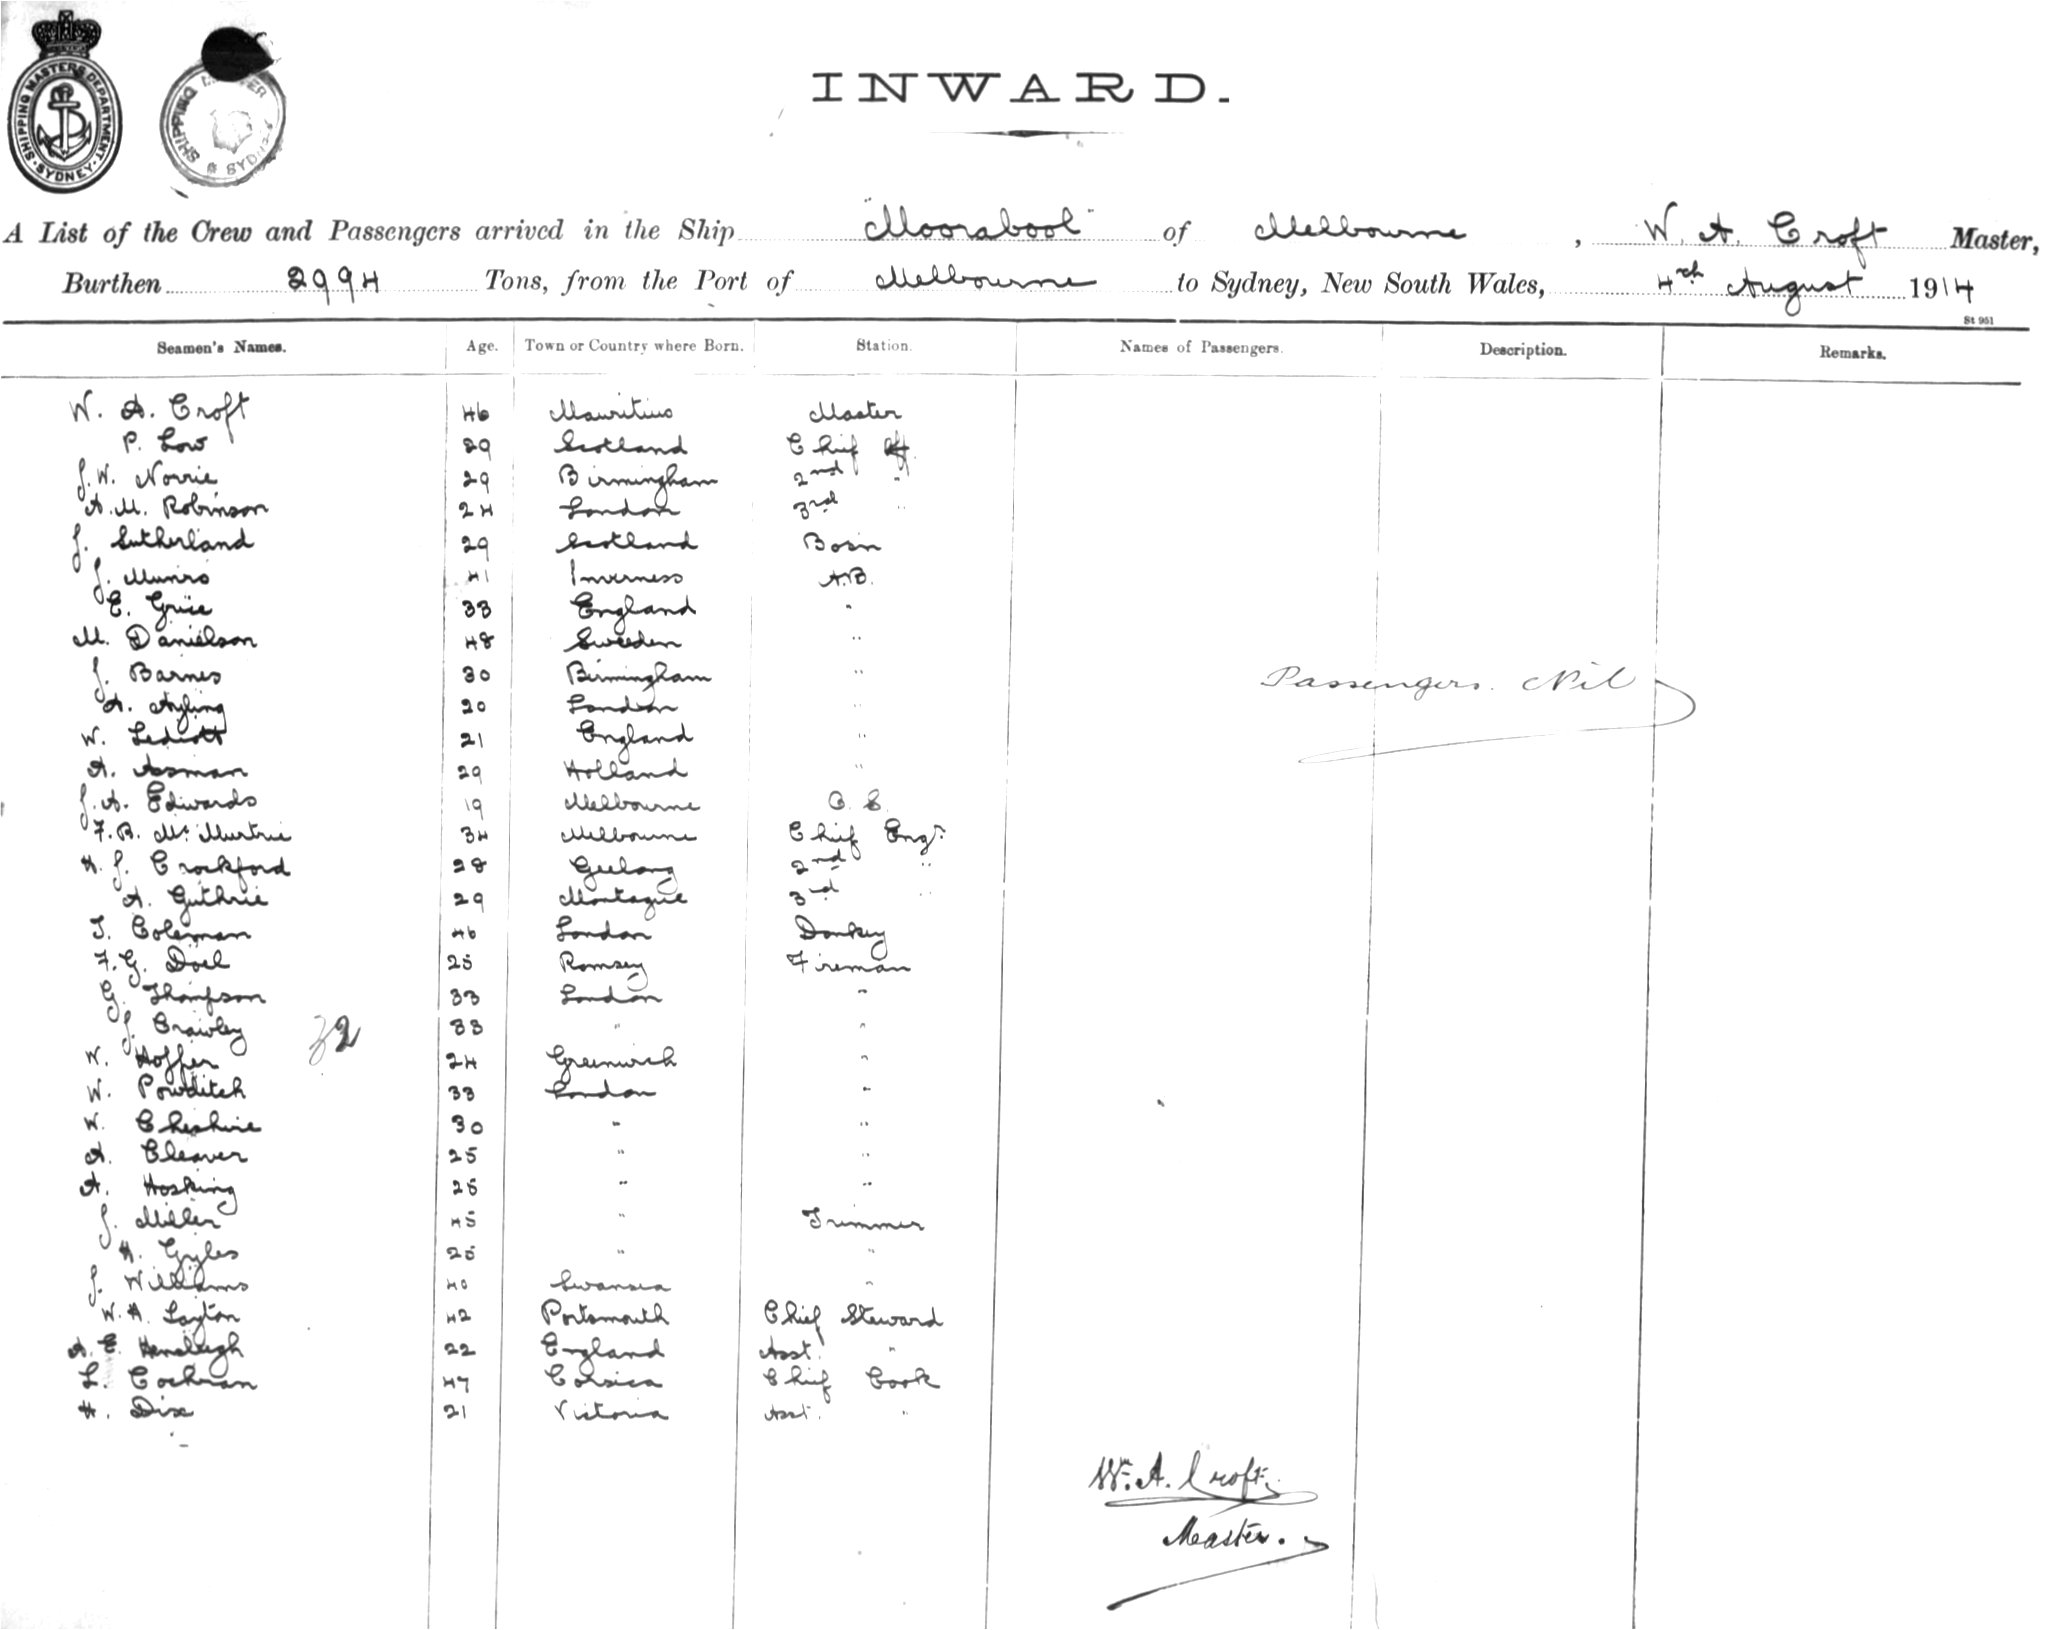 SHIPPING MASTERS DEPARTMENT. SYDNEY
SHIPPING MASTER SYDNEY
INWARD.
A List of the Crew and Passengers arrived in the Ship "Moorabool" of Melbourne, W. A. Croft Master,
Burthen 2994 Tons, from the Port of Melbourne to Sydney, New South Wales, 4th August 1914
St 951
Seamen's Names. Age. Town or Country where Born. Station. Names of Passengers. Description. Remarks.
W. A. Croft 46 Mauritius Master
P. Low 29 Scotland Chief Off.
J. W. Norrie 29 Birmingham 2nd "
A. M. Robinson 24 London 3rd "
J. Sutherland 29 Scotland Bosn
J. Munro 41 Inverness A.B.
E. Grice 33 England "
M. Danielson 48 Sweeden "
J. Barnes 30 Birmingham "
Passengers. Nil
A. Ayling 20 London "
W. 21 England "
A. Asman 29 Holland "
J. A. Edwards 19 Melbourne O. S.
F. B. Mc Murtrie 34 Melbourne Chief Engr.
H. J. Crockford 28 Geelong 2nd "
A. Guthrie 29 Montague 3rd "
T. Coleman 46 London Donkey
F. G. Doel 25 Romsey Fireman
G. Thompson 33 London "
J. Crawley 33 " "
32
W. Hoffer 24 Greenwich "
W. Powditch 33 London "
W. Cheshire 30 " "
A. Cleaver 25 " "
A. Hosking 25 " "
J. Miller 45 " Trimmer
H. Gyles 25 " "
J. Williams 40 Swansea "
W. H. Layton 42 Portsmouth Chief Steward
A. E. Hensleigh 22 England Asst. "
L. Cochran 47 Corsica Chief Cook
H. Dix 21 Victoria Asst. "
Wm. A. Croft
Master.